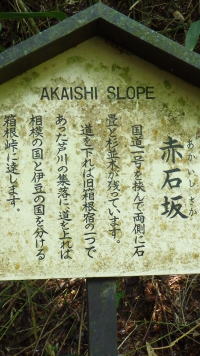 AKAISHI SLOPE
赤石坂
あかいしさか
国道一号を挟んで両側に石
畳と杉並木が残っています。
道を下れば旧箱根宿の一つで
あった芦川の集落に、道を上れば
相模の国と伊豆の国を分ける
箱根峠に達します。